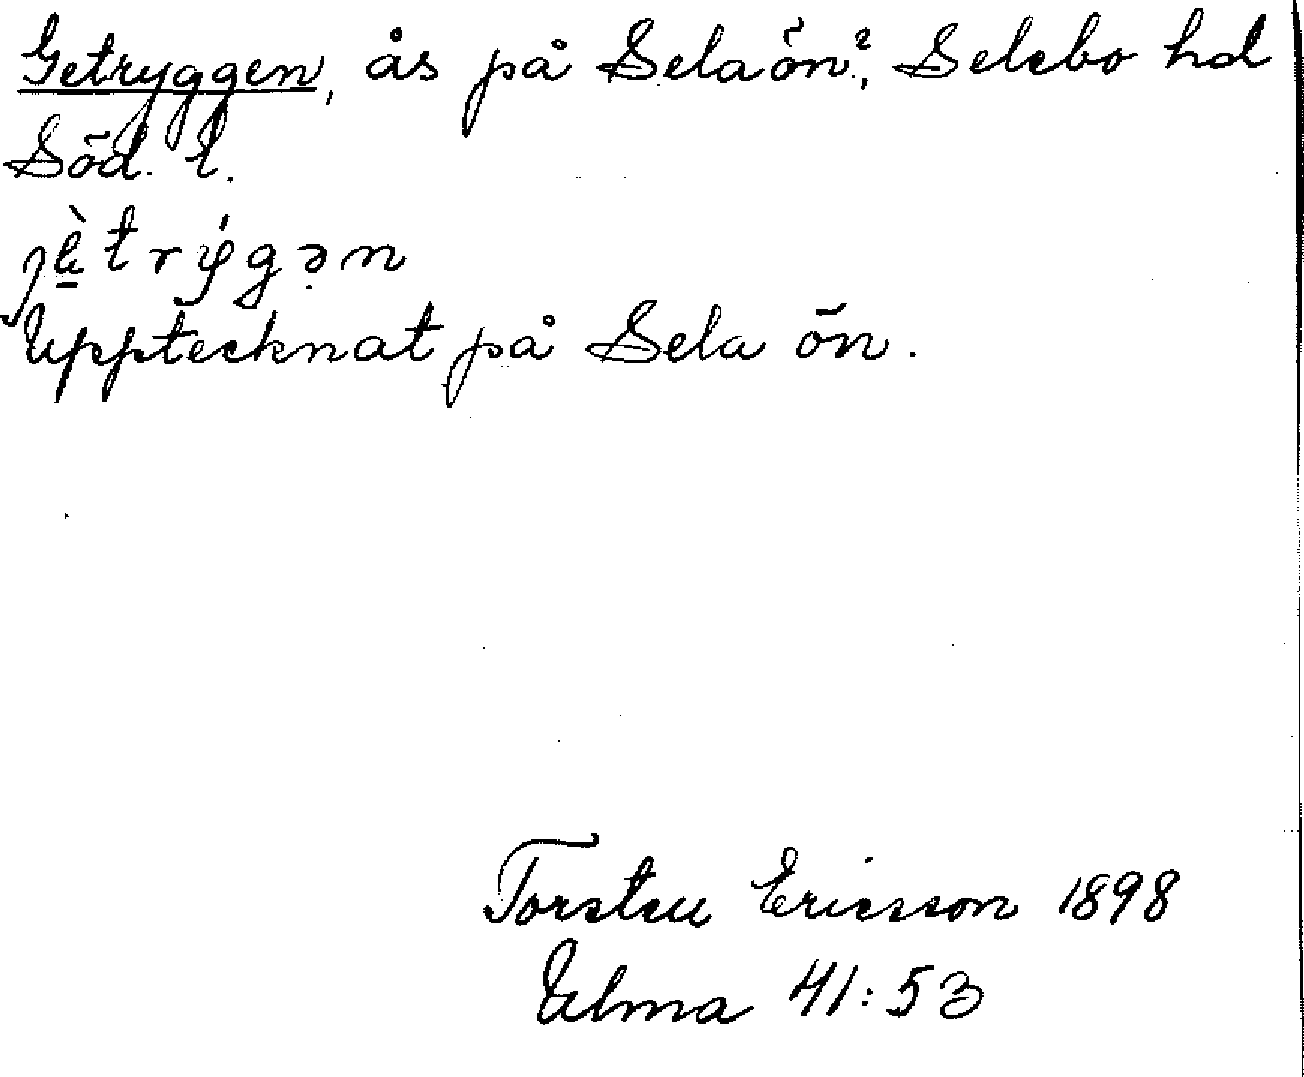 Getryggen, ås på Selaön?, Selebo hd
Söd. l.
jè̱trýgən
Upptecknat på Sela ön.
Torsten Ericsson 1898
Ulma 41:53